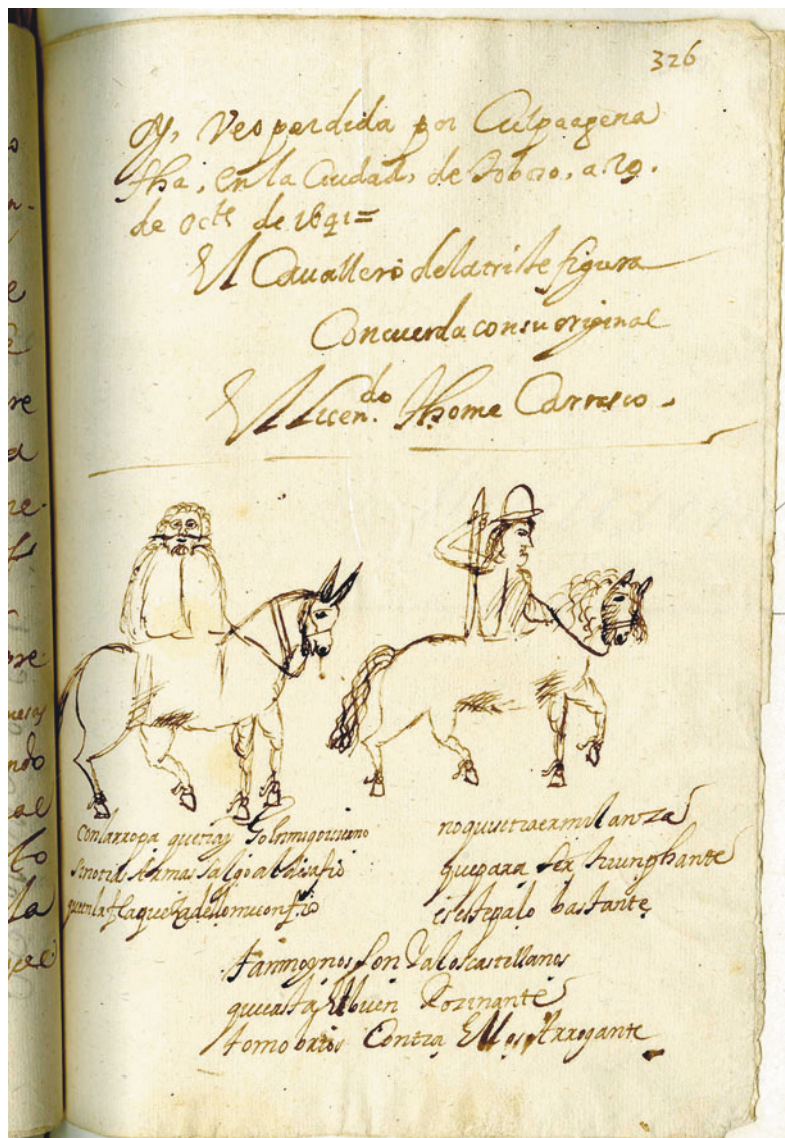 326
Oy, Veo perdida por Culpa agena
fha, en la Ciudad, de Toboso, a 29.
de octe de 1641=
El Cauallero de la triste figura
Concuerda con su original
El Licen.do Thome Carrasco.
Con la rropa que traygo en mi gouierno
sin otras Armas salgo al desafio
que en la flaqueza del lomo confio
no quise traer mi lanza
que para ser triunphante
es este palo bastante
tan mognos son Ya los castellanos
que asta el buen Rozinante
tomo brios Contra Ellos Arrogante